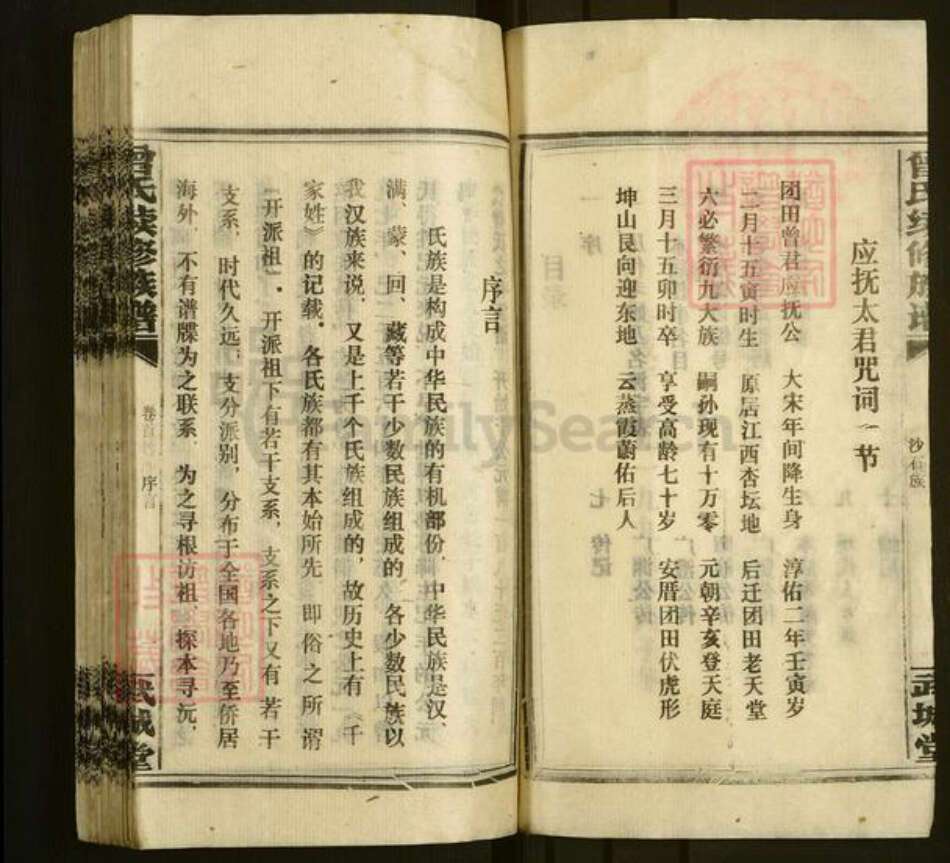 曾氏续修族谱
沙石族
武城堂
应抚太君咒词一节
团田曾君应抚公 大宋年间降生身 淳佑二年壬寅岁
二月十五寅时生 原居江西杏坛地 后迁团田老天堂
六必繁衍九大族 嗣孙现有十万零 元朝辛亥登天庭
三月十五卯时卒 享受高龄七十岁 安厝团田伏虎形
坤山艮向迎东地 云蒸霞蔚佑后人
序言
氏族是构成中华民族的有机部份，中华民族是汉、
满、蒙、回、藏等若干少数民族组成的，各少数民族以
我汉族来说，又是上千个氏族组成的，故历史上有《千
家姓》的记载。各氏族都有其本始所先，即俗之所谓
“开派祖”。开派祖下有若干支系，支系之下又有若干
支系，时代久远，支分派别，分布于全国各地乃至侨居
海外，不有谱牒为之联系，为之寻根访祖，探本寻沅，
曾氏续修族谱
卷首
序言
武城堂
FamilySearch